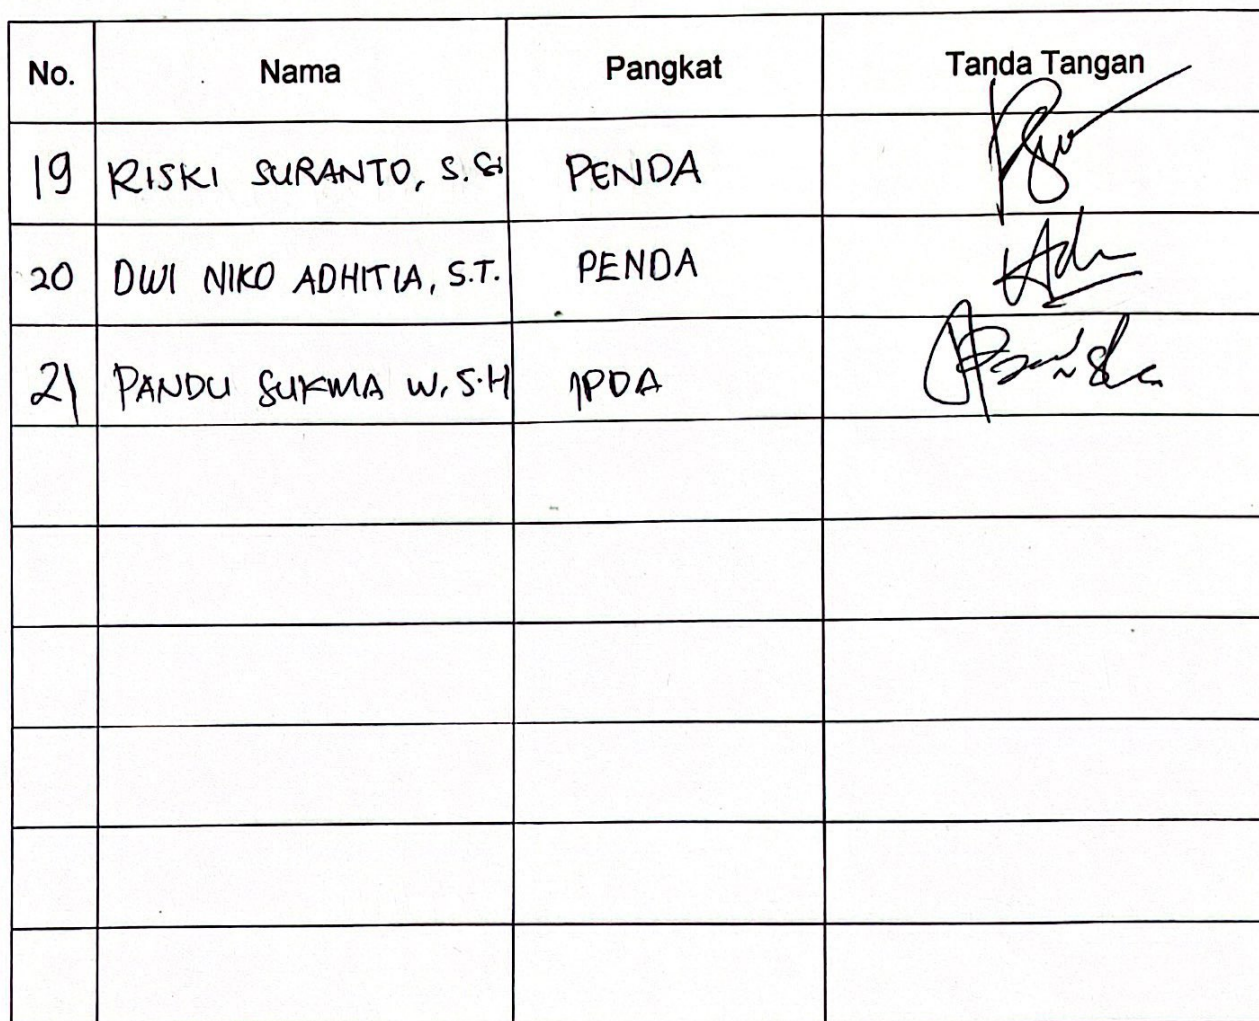 No. Nama Pangkat Tanda Tangan
19 RISKI SURANTO, S.Si PENDA
20 DWI NIKO ADHITIA, S.T. PENDA
21 PANDU SUKMA W, S.H IPDA